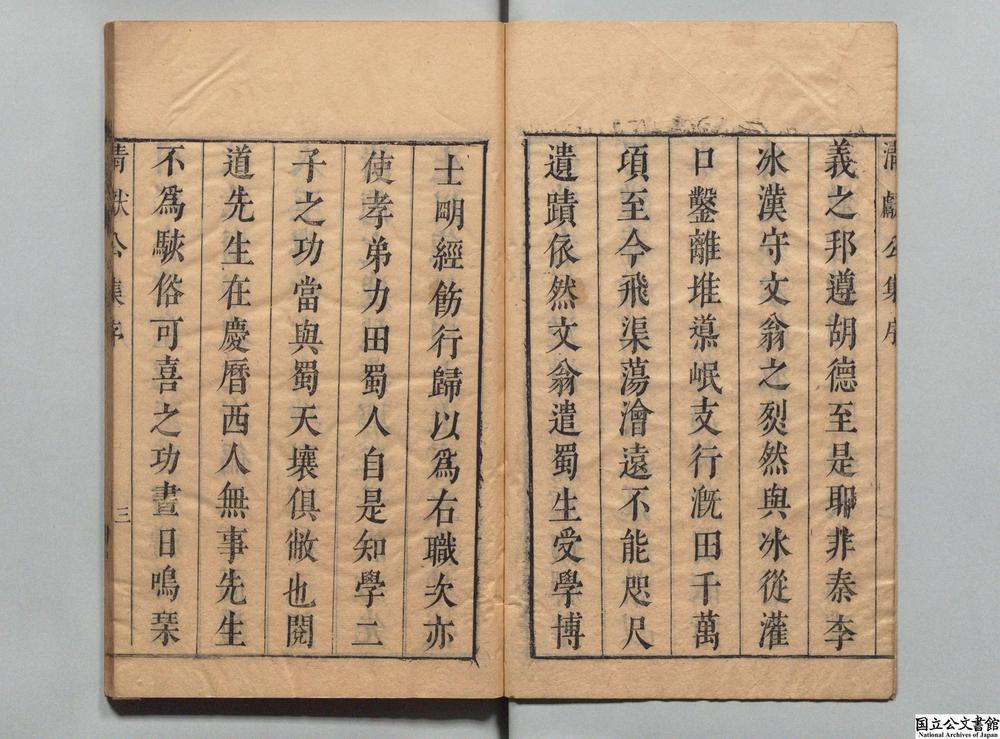 清獻公集序
義之邦遵胡德至是耶非秦李
冰漢守文翁之烈然與冰從灌
口鑿離堆㵤岷支行溉田千萬
頃至今飛渠蕩澮遠不能咫尺
遺蹟依然文翁遣蜀生受學博
士明經飭行歸以爲右職次亦
使孝弟力田蜀人自是知學二
子之功當與蜀天壤俱敝也閱
道先生在慶曆西人無事先生
不爲駭俗可喜之功晝日鳴琹
清獻公集序
三
国立公文書館
National Archives of Japan